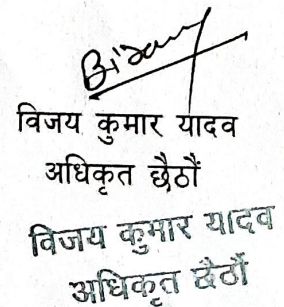 विजय कुमार यादव
अधिकृत छैठौं
विजय कुमार यादव
अधिकृत छैठौं